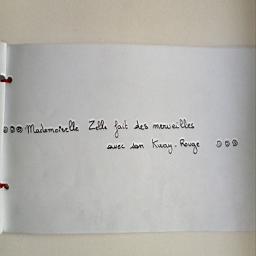 Mademoiselle Zélie fait des merveilles
avec son Kway-Rouge